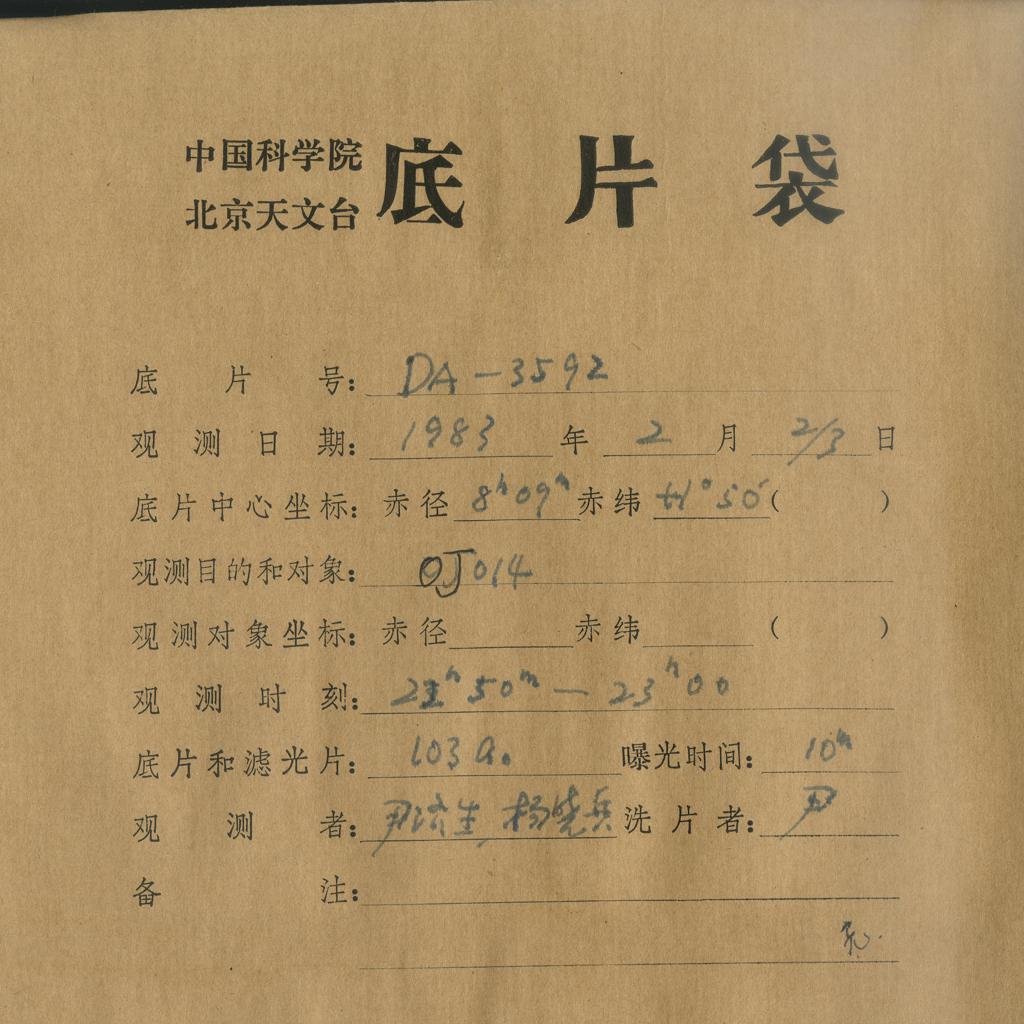 中国科学院
北京天文台 底片袋
底片号: DA-3592
观测日期: 1983 年 2 月 2/3 日
底片中心坐标: 赤径 8h09m 赤纬 +1°50′ ( )
观测目的和对象: OJ014
观测对象坐标: 赤径 赤纬 ( )
观测时刻: 22h50m — 23h00
底片和滤光片: 103a。 曝光时间: 10m
观测者: 尹济生 杨晓兵 洗片者: 尹
备注: